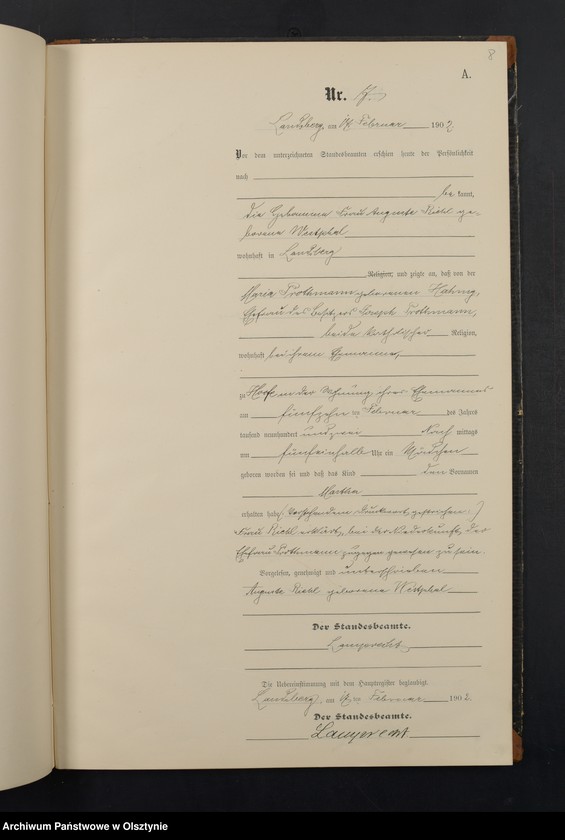 8
A.
Nr. 17.
Landsberg, am 17. Februar 1902
Vor dem unterzeichneten Standesbeamten erschien heute der Persönlichkeit
nach
be kannt,
die Hebamme Frau Auguste Riehl ge-
borene Westphal
wohnhaft in Landsberg
Religion, und zeigte an, daß von der
Maria Trothmann geborenen
Ehefrau des Besitzers Joseph Trothmann,
beide katholischer Religion,
wohnhaft bei ihrem Ehemanne,
zu Hoof in der Wohnung ihres Ehemannes
am fünfzehn ten Februar des Jahres
tausend neunhundert und zwei Nach mittags
um fünfeinhalb Uhr ein Mädchen
geboren worden sei und daß das Kind den Vornamen
Martha
erhalten habe (Vorstehendem Druckwort gestrichen.)
Frau Riehl erklärt, bei der Niederkunft der
Ehefrau Trothmann zugegen gewesen zu sein.
Vorgelesen, genehmigt und unterschrieben
Auguste Riehl geborene Westphal
Der Standesbeamte.
Lamprecht
Die Uebereinstimmung mit dem Hauptregister beglaubigt.
Landsberg, am 17. ten Februar 1902.
Der Standesbeamte.
Lamprecht
Archiwum Państwowe w Olsztynie